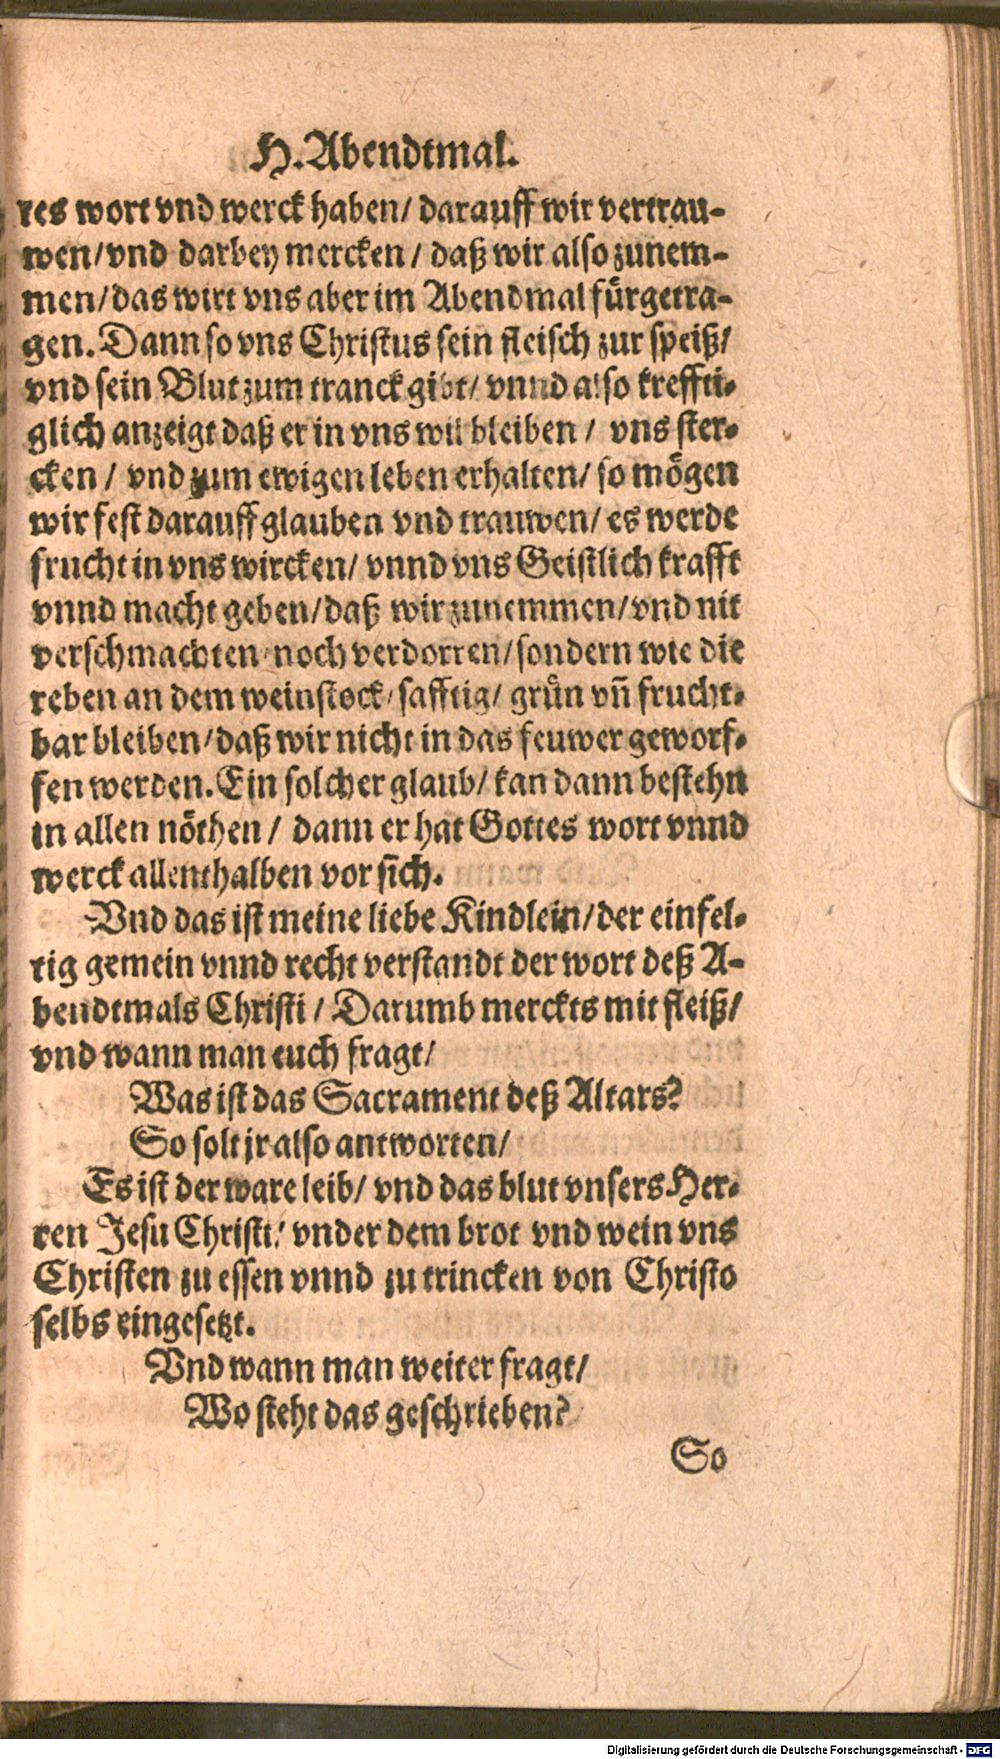 H. Abendtmal.
tes wort vnd werck haben/ darauff wir vertrau-
wen/ vnd darbey mercken / daß wir also zunem-
men/ das wirt vns aber im Abendmal fürgetra-
gen. Dann so vns Christus sein fleisch zur speiß/
vnd sein Blut zum tranck gibt/ vnnd also kreffti-
glich anzeigt daß er in vns wil bleiben / vns ster-
cken / vnd zum ewigen leben erhalten/ so mögen
wir fest darauff glauben vnd trauwen/ es werde
frucht in vns wircken/ vnnd vns Geistlich krafft
vnnd macht geben/ daß wir zunemmen/ vnd nit
verschmachten/ noch verdorren/ sondern wie die
reben an dem weinstock/ safftig/ grün vñ frucht-
bar bleiben/ daß wir nicht in das feuwer geworf-
fen werden. Ein solcher glaub/ kan dann bestehn
in allen nöthen / dann er hat Gottes wort vnnd
werck allenthalben vor sich.
Vnd das ist meine liebe Kindlein/ der einfel-
tig gemein vnnd recht verstandt der wort deß A-
bendtmals Christi / Darumb merckts mit fleiß/
vnd wann man euch fragt/
Was ist das Sacrament deß Altars?
So solt jr also antworten/
Es ist der ware leib/ vnd das blut vnsers Her-
ren Jesu Christi/ vnder dem brot vnd wein vns
Christen zu essen vnnd zu trincken von Christo
selbs eingesetzt.
Vnd wann man weiter fragt/
Wo steht das geschrieben?
So
Digitalisierung gefördert durch die Deutsche Forschungsgemeinschaft - DFG